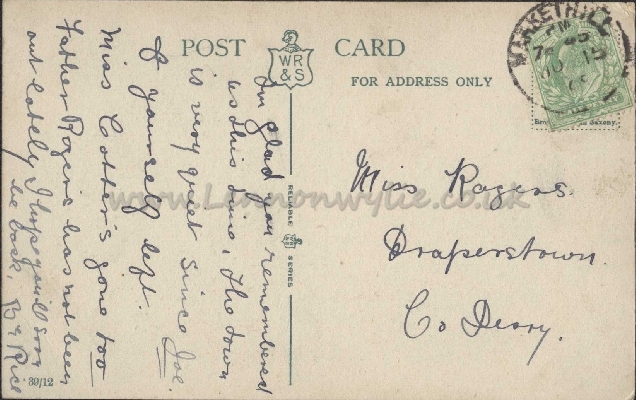 POST CARD
WR
& S
FOR ADDRESS ONLY
MARKETHILL
RELIABLE
SERIES
39/12
www.Lennonwylie.co.uk
Miss Rogers.
Draperstown.
Co Derry.
I'm glad you remembered
us this time, The town
is very quiet since Joe.
& yourself left.
Miss Cotter's gone too
Father Rogers has not been
out lately I hope you'll soon
be back. B & Rice